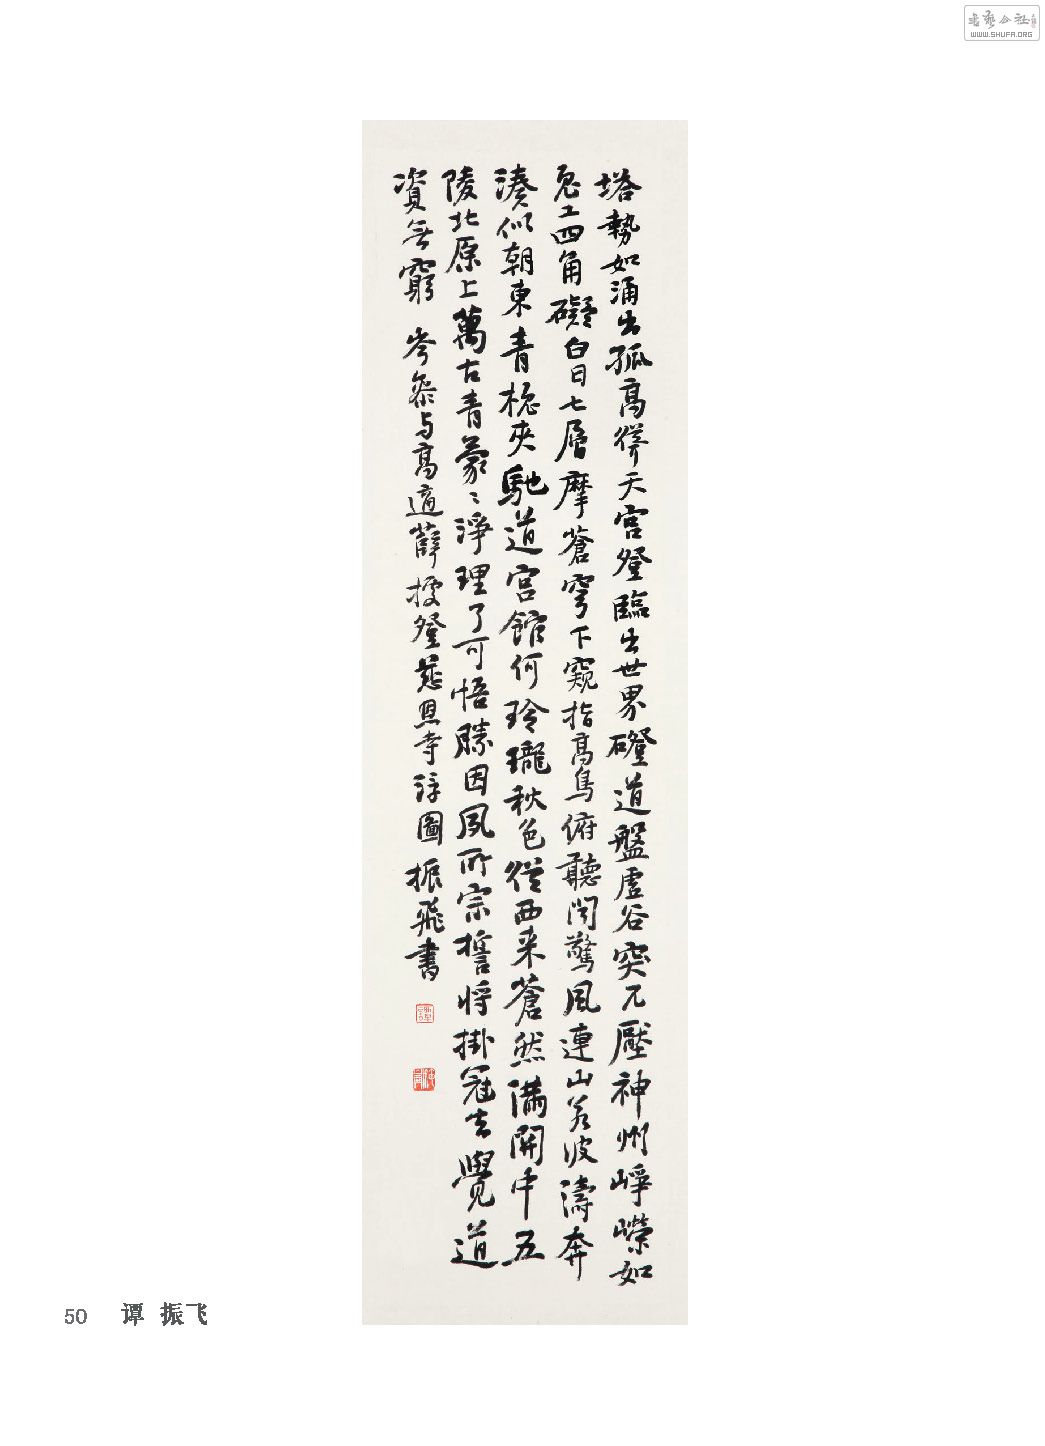 塔勢如涌出孤高聳天宮登臨出世界磴道盤虛空突兀壓神州崢嶸如
鬼工四角礙白日七層摩蒼穹下窺指高鳥俯聽聞驚風連山若波濤奔
湊似朝東青槐夾馳道宮館何玲瓏秋色從西来蒼然滿關中五
陵北原上萬古青蒙〻淨理了可悟勝因夙所宗誓将掛冠去覺道
資無窮 岑參与高適薛據登慈恩寺浮圖 振飛書
50 谭 振飞
WWW.SHUFA.ORG